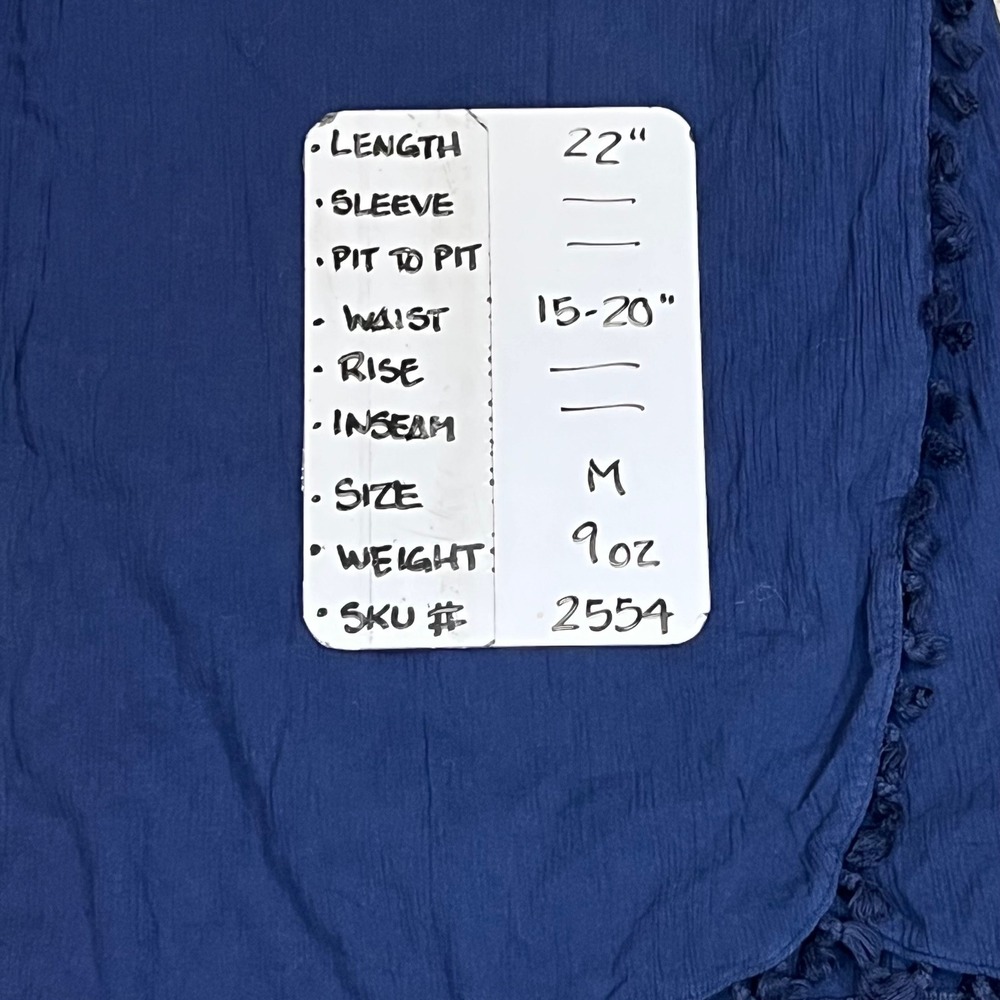 • LENGTH 22"
• SLEEVE —
• PIT TO PIT —
• WAIST 15-20"
• RISE —
• INSEAM —
• SIZE M
• WEIGHT 9 OZ
• SKU # 2554